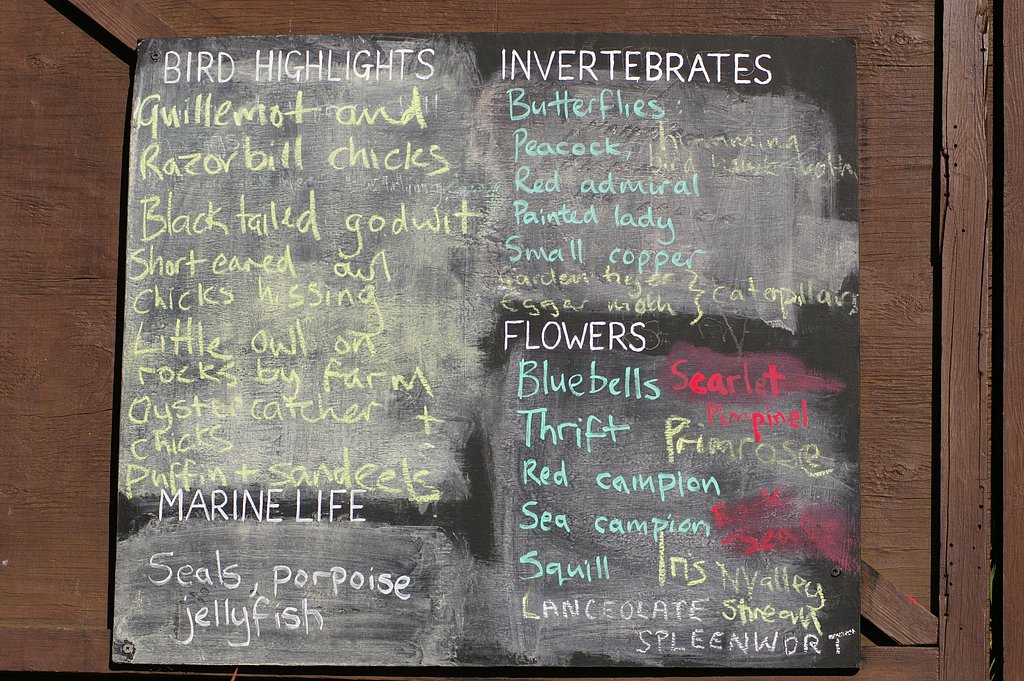 BIRD HIGHLIGHTS
Guillemot and
Razorbill chicks
Black tailed godwit
Short eared owl
chicks hissing
Little owl on
rocks by farm
Oystercatcher +
chicks
Puffin + sandeels
MARINE LIFE
Seals, porpoise
jellyfish
INVERTEBRATES
Butterflies:
Peacock, humming
bird hawk-moth
Red admiral
Painted lady
Small copper
Garden tiger } caterpillars
Eggar moth }
FLOWERS
Bluebells Scarlet
Pimpinel
Thrift Primrose
Red campion
Sea campion Rock
Sea
Squill Iris N Valley
Stream
LANCEOLATE
SPLEENWORT